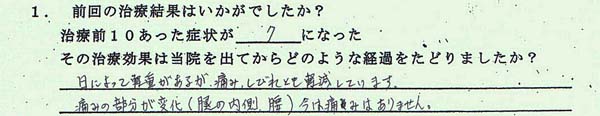 1. 前回の治療結果はいかがでしたか?
治療前10あった症状が 7 になった
その治療効果は当院を出てからどのような経過をたどりましたか?
日によって軽重があるが、痛み、しびれとも軽減しています。
痛みの部分が変化(腿の内側、腰)今は痛みはありません。